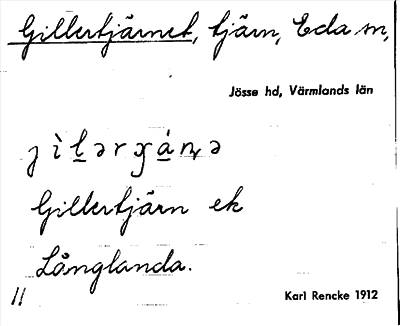 Gillertjärnet, tjärn, Eda sn,
Jösse hd, Värmlands län
Gillertjärn ek
Långlanda.
11
Karl Rencke 1912